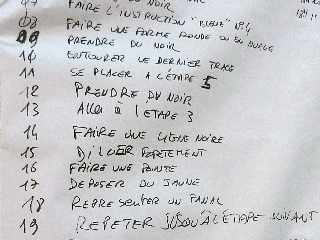 07 DU NOIR
08 FAIRE L'INSTRUCTION "BLEUE" N°4
FAIRE UNE FORME RONDE OU EN BOUCLE
09 PRENDRE DU NOIR
10 ENTOURER LE DERNIER TRACE
11 SE PLACER A L'ETAPE 5
12 PRENDRE DU NOIR
13 Aller à l'ETAPE 3
14 FAIRE UNE LIGNE NOIRE
15 DILUER FORTEMENT
16 FAIRE UNE POINTE
17 DEPOSER DU JAUNE
18 REPRESENTER UN FANAL
19 REPETER JUSQU'À L'ETAPE SUIVANT